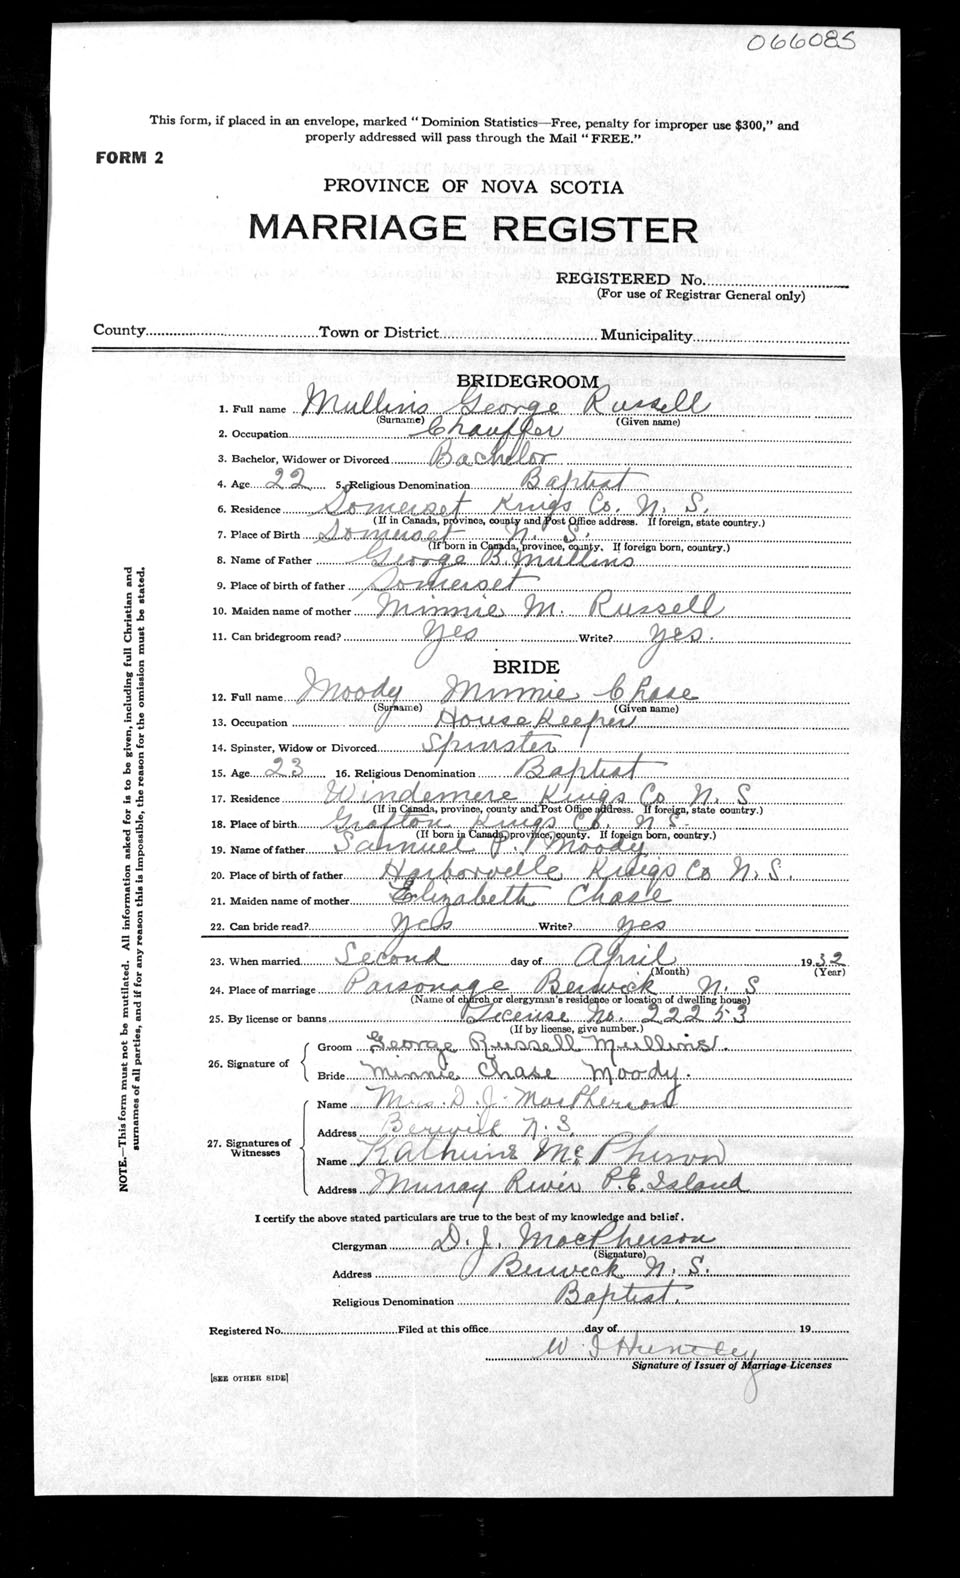 066085
This form, if placed in an envelope, marked "Dominion Statistics—Free, penalty for improper use $300," and
properly addressed will pass through the Mail "FREE."
FORM 2
PROVINCE OF NOVA SCOTIA
MARRIAGE REGISTER
REGISTERED No.
(For use of Registrar General only)
County Town or District Municipality
BRIDEGROOM
1. Full name Mullins George Russell
(Surname) (Given name)
2. Occupation Chauffer
3. Bachelor, Widower or Divorced Bachelor
4. Age 22 5. Religious Denomination Baptist
6. Residence Somerset Kings Co. N. S.
(If in Canada, province, county and Post Office address. If foreign, state country.)
7. Place of Birth Somerset N. S.
(If born in Canada, province, county. If foreign born, country.)
8. Name of Father George B. Mullins
9. Place of birth of father Somerset
10. Maiden name of mother Minnie M. Russell
11. Can bridegroom read? Yes Write? Yes.
BRIDE
12. Full name Moody Minnie Chase
(Surname) (Given name)
13. Occupation House Keeper
14. Spinster, Widow or Divorced Spinster
15. Age 23 16. Religious Denomination Baptist
17. Residence Windemere Kings Co N. S
(If in Canada, province, county and Post Office address. If foreign, state country.)
18. Place of birth Grafton Kings Co. N. S.
(If born in Canada, province, county. If foreign born, country.)
19. Name of father Samuel J. Moody
20. Place of birth of father Harborville Kings Co N. S.
21. Maiden name of mother Elizabeth Chase
22. Can bride read? Yes Write? yes
23. When married Second day of April 1932
(Month) (Year)
24. Place of marriage Parsonage Berwick N. S
(Name of church or clergyman's residence or location of dwelling house)
25. By license or banns License No. 22253
(If by license, give number.)
26. Signature of
Groom George Russell Mullins.
Bride Minnie Chase Moody.
27. Signatures of Witnesses
Name Mrs. D. J. MacPherson
Address Berwick N. S.
Name Kathrine McPherson
Address Murray River P.E. Island
I certify the above stated particulars are true to the best of my knowledge and belief.
Clergyman D. J. MacPherson
(Signature)
Address Berwick N. S.
Religious Denomination Baptist.
Registered No. Filed at this office day of 19
W I Huntley
Signature of Issuer of Marriage Licenses
[SEE OTHER SIDE]
NOTE.—This form must not be mutilated. All information asked for is to be given, including full Christian and
surnames of all parties, and if for any reason this is impossible, the reason for the omission must be stated.